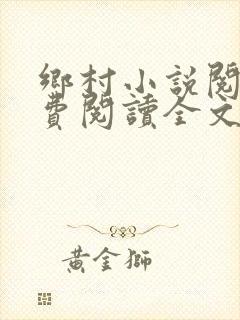 鄉村小說閱
費閱讀全文
黃金獅